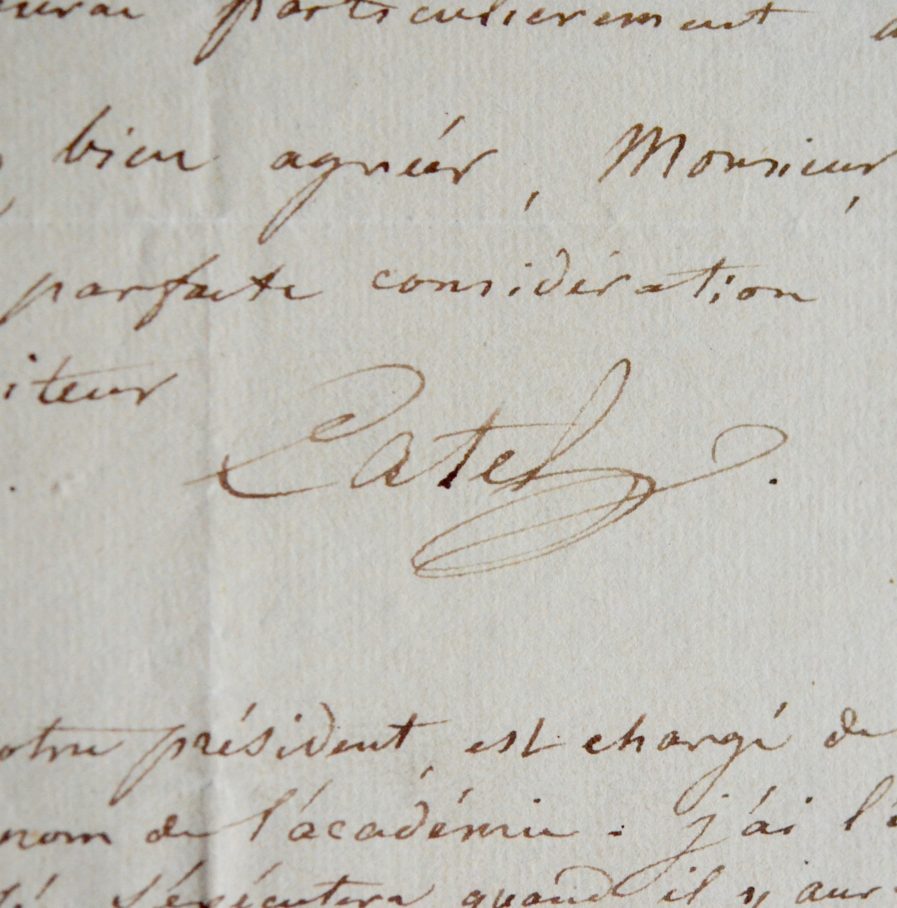 particulièrement
bien agréér, Monsieur,
parfaite considération
iteur
Catel
otre président, est chargé de
nom de l'académie. j'ai l'
s'éxécutera quand il y aur